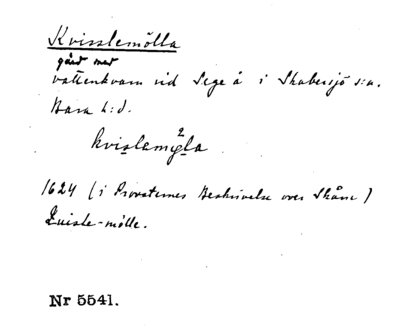 Kvisslemölla
gård med
vattenkvarn vid Sege å i Skabersjö s:n.
Bara h:d.
kvislemɥla
2
1624 (i Provsternes Beskrivelse over Skåne)
Quisle-mölle.
Nr 5541.